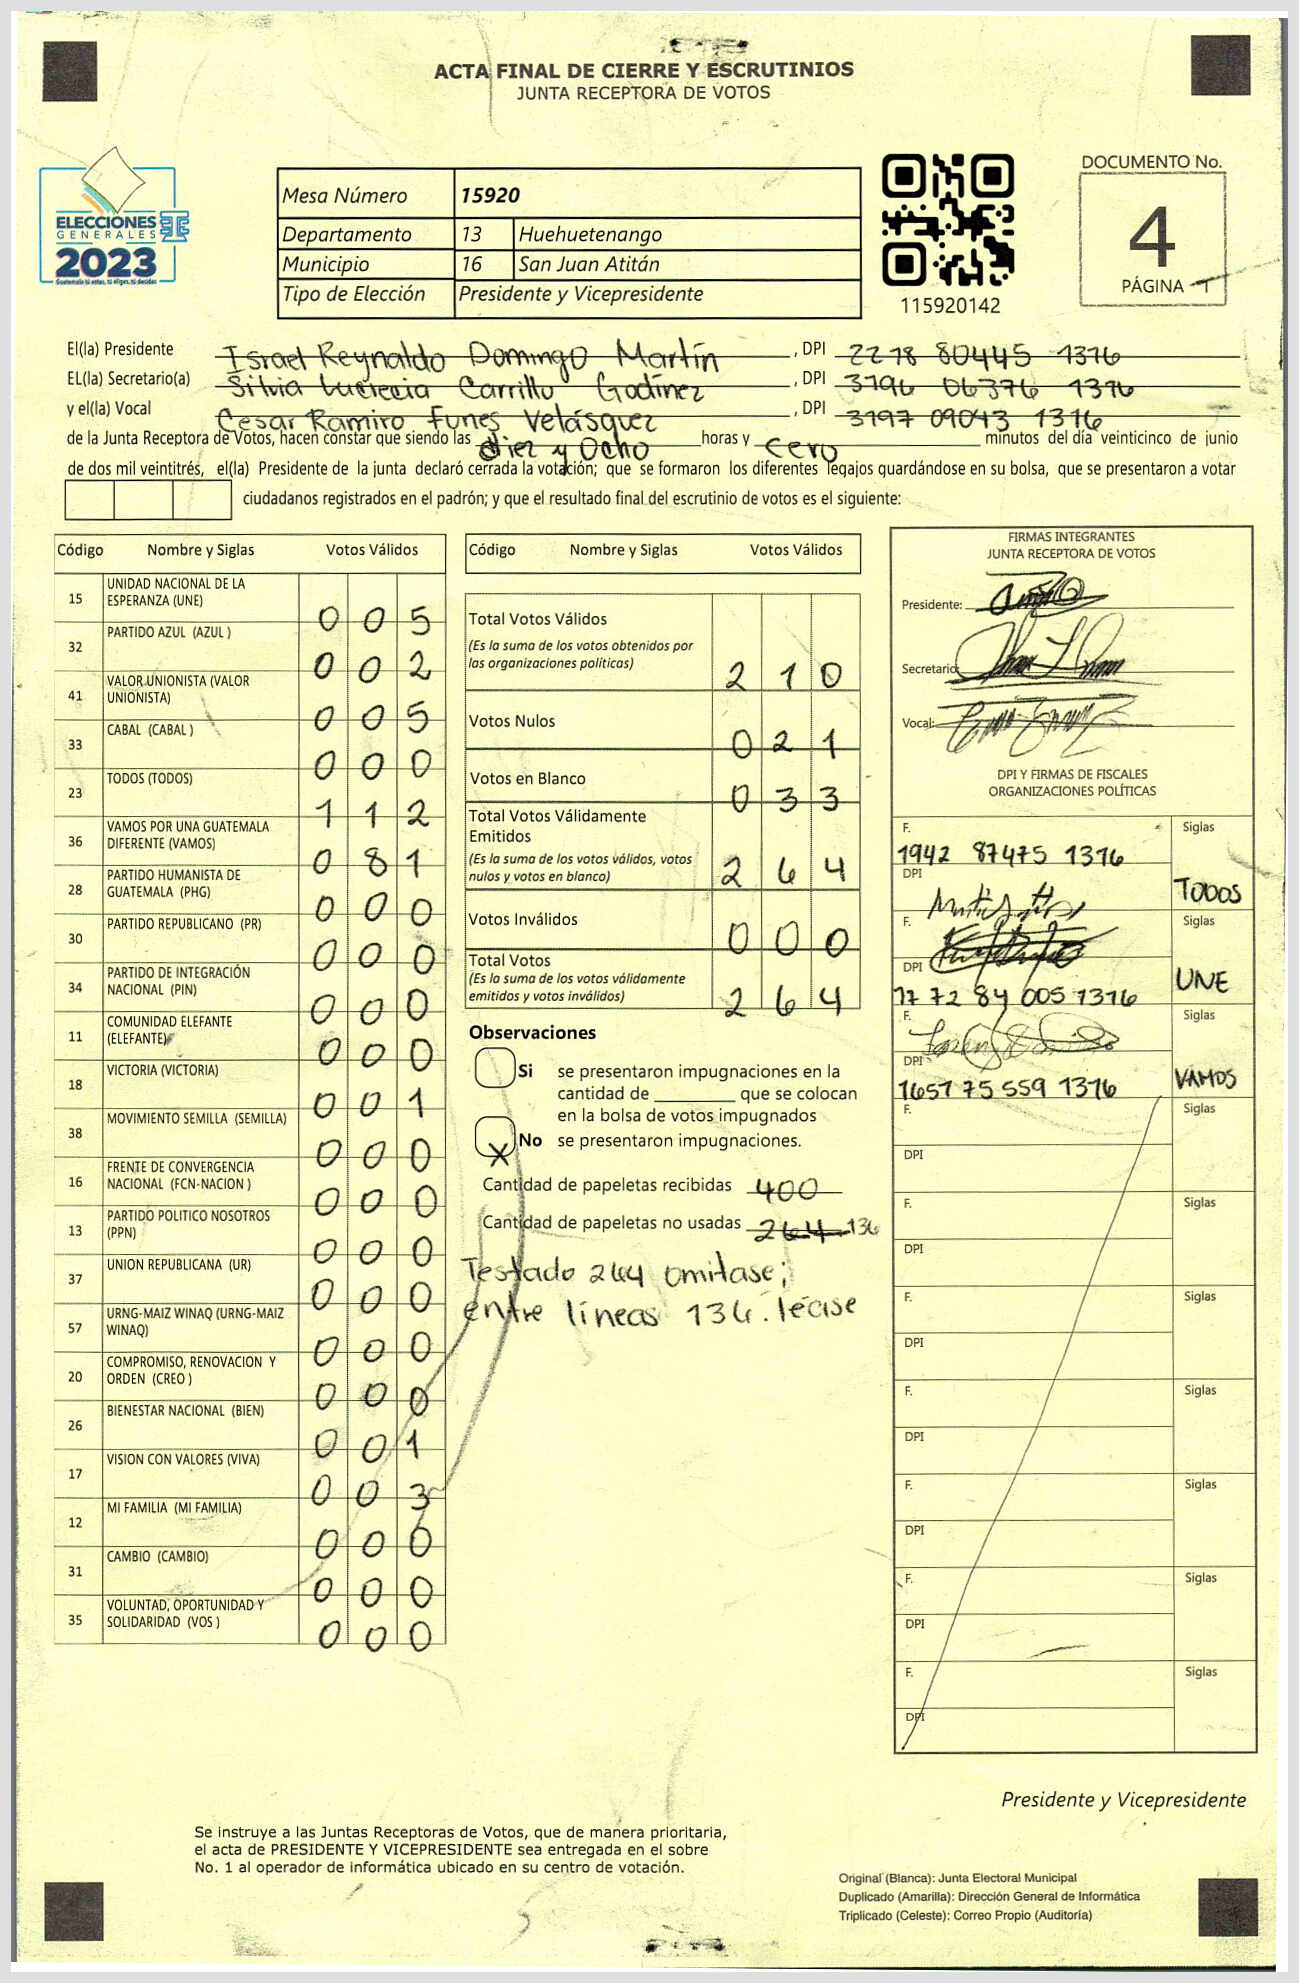 ACTA FINAL DE CIERRE Y ESCRUTINIOS
JUNTA RECEPTORA DE VOTOS
ELECCIONES
GENERALES
2023
Guatemala tú votas, tú eliges, tú decides
Mesa Número 15920
Departamento 13 Huehuetenango
Municipio 16 San Juan Atitán
Tipo de Elección Presidente y Vicepresidente
115920142
DOCUMENTO No.
4
PÁGINA 1
El(la) Presidente Israel Reynaldo Domingo Martín , DPI 2278 80445 1316
EL(la) Secretario(a) Silvia Lucrecia Carrillo Godínez , DPI 3196 06376 1316
y el(la) Vocal Cesar Ramiro Funes Velásquez , DPI 3197 09043 1316
de la Junta Receptora de Votos, hacen constar que siendo las diez y Ocho horas y cero minutos del día veinticinco de junio
de dos mil veintitrés, el(la) Presidente de la junta declaró cerrada la votación; que se formaron los diferentes legajos guardándose en su bolsa, que se presentaron a votar
ciudadanos registrados en el padrón; y que el resultado final del escrutinio de votos es el siguiente:
Código Nombre y Siglas Votos Válidos
15 UNIDAD NACIONAL DE LA ESPERANZA (UNE) 0 0 5
32 PARTIDO AZUL (AZUL ) 0 0 2
41 VALOR UNIONISTA (VALOR UNIONISTA) 0 0 5
33 CABAL (CABAL ) 0 0 0
23 TODOS (TODOS) 1 1 2
36 VAMOS POR UNA GUATEMALA DIFERENTE (VAMOS) 0 8 1
28 PARTIDO HUMANISTA DE GUATEMALA (PHG) 0 0 0
30 PARTIDO REPUBLICANO (PR) 0 0 0
34 PARTIDO DE INTEGRACIÓN NACIONAL (PIN) 0 0 0
11 COMUNIDAD ELEFANTE (ELEFANTE) 0 0 0
18 VICTORIA (VICTORIA) 0 0 1
38 MOVIMIENTO SEMILLA (SEMILLA) 0 0 0
16 FRENTE DE CONVERGENCIA NACIONAL (FCN-NACION ) 0 0 0
13 PARTIDO POLITICO NOSOTROS (PPN) 0 0 0
37 UNION REPUBLICANA (UR) 0 0 0
57 URNG-MAIZ WINAQ (URNG-MAIZ WINAQ) 0 0 0
20 COMPROMISO, RENOVACION Y ORDEN (CREO ) 0 0 0
26 BIENESTAR NACIONAL (BIEN) 0 0 1
17 VISION CON VALORES (VIVA) 0 0 3
12 MI FAMILIA (MI FAMILIA) 0 0 0
31 CAMBIO (CAMBIO) 0 0 0
35 VOLUNTAD, OPORTUNIDAD Y SOLIDARIDAD (VOS ) 0 0 0
Código Nombre y Siglas Votos Válidos
Total Votos Válidos
(Es la suma de los votos obtenidos por
las organizaciones políticas) 2 1 0
Votos Nulos 0 2 1
Votos en Blanco 0 3 3
Total Votos Válidamente
Emitidos
(Es la suma de los votos válidos, votos
nulos y votos en blanco) 2 6 4
Votos Inválidos 0 0 0
Total Votos
(Es la suma de los votos válidamente
emitidos y votos inválidos) 2 6 4
Observaciones
Si se presentaron impugnaciones en la
cantidad de ________ que se colocan
en la bolsa de votos impugnados
X No se presentaron impugnaciones.
Cantidad de papeletas recibidas 400
Cantidad de papeletas no usadas 264 136
Testado 264 omitase;
entre líneas 136. léase
FIRMAS INTEGRANTES
JUNTA RECEPTORA DE VOTOS
Presidente:
Secretario:
Vocal:
DPI Y FIRMAS DE FISCALES
ORGANIZACIONES POLÍTICAS
F. Siglas
1942 87475 1316
DPI TODOS
F. Siglas
DPI UNE
1772 84 005 1316
F. Siglas
DPI VAMOS
1657 75 559 1316
F. Siglas
DPI
F. Siglas
DPI
F. Siglas
DPI
F. Siglas
DPI
F. Siglas
DPI
F. Siglas
DPI
F. Siglas
DPI
Presidente y Vicepresidente
Se instruye a las Juntas Receptoras de Votos, que de manera prioritaria,
el acta de PRESIDENTE Y VICEPRESIDENTE sea entregada en el sobre
No. 1 al operador de informática ubicado en su centro de votación.
Original (Blanca): Junta Electoral Municipal
Duplicado (Amarilla): Dirección General de Informática
Triplicado (Celeste): Correo Propio (Auditoría)